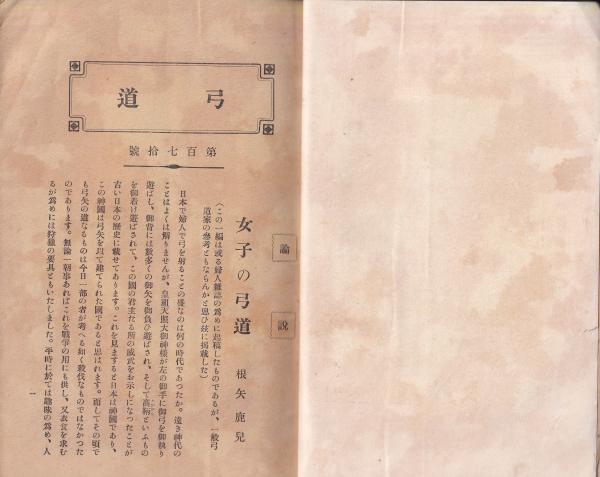 弓道
第百七拾號
論說
女子の弓道
根矢鹿兒
(この一編は或る婦人雜誌の爲めに起稿したものであるが、一般弓
道家の參考ともならんかと思ひ玆に揭載した)
日本で婦人で弓を射ることの盛なのは何の時代であつたか。遠き神代の
ことはよくは解りませんが、皇祖天照大御神樣が左の御手に御弓を御執り
遊ばし、御背には數多くの御矢を御負ひ遊ばされ、そして高鞆といふもの
を御着け遊ばされて、この國の君主たる所の威武をお示しになつたことが
古い日本の歷史に載せてあります。これを見ますると日本は神國であり、
この神國は弓矢を以て建てられた國であると思はれます。而してその頃で
も弓矢の道なるものは今日一部の者が考へる如く殺伐なものではなかつた
のであります。無論一朝事あればこれを戰爭の用にも供し、又衣食を求む
るが爲めには狩獵の要具ともいたしました。平時に於ては趣味の爲め、人
一